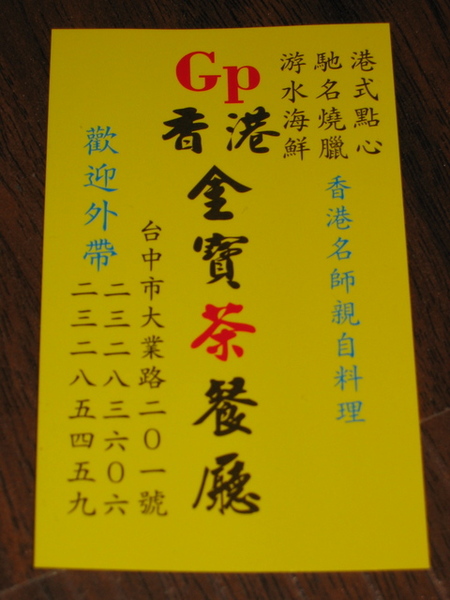 港式點心
馳名燒臘
游水海鮮
香港名師親自料理
Gp
香港
金寶茶餐廳
台中市大業路二０一號
二三二八三六０六
二三二八五四五九
歡迎外帶